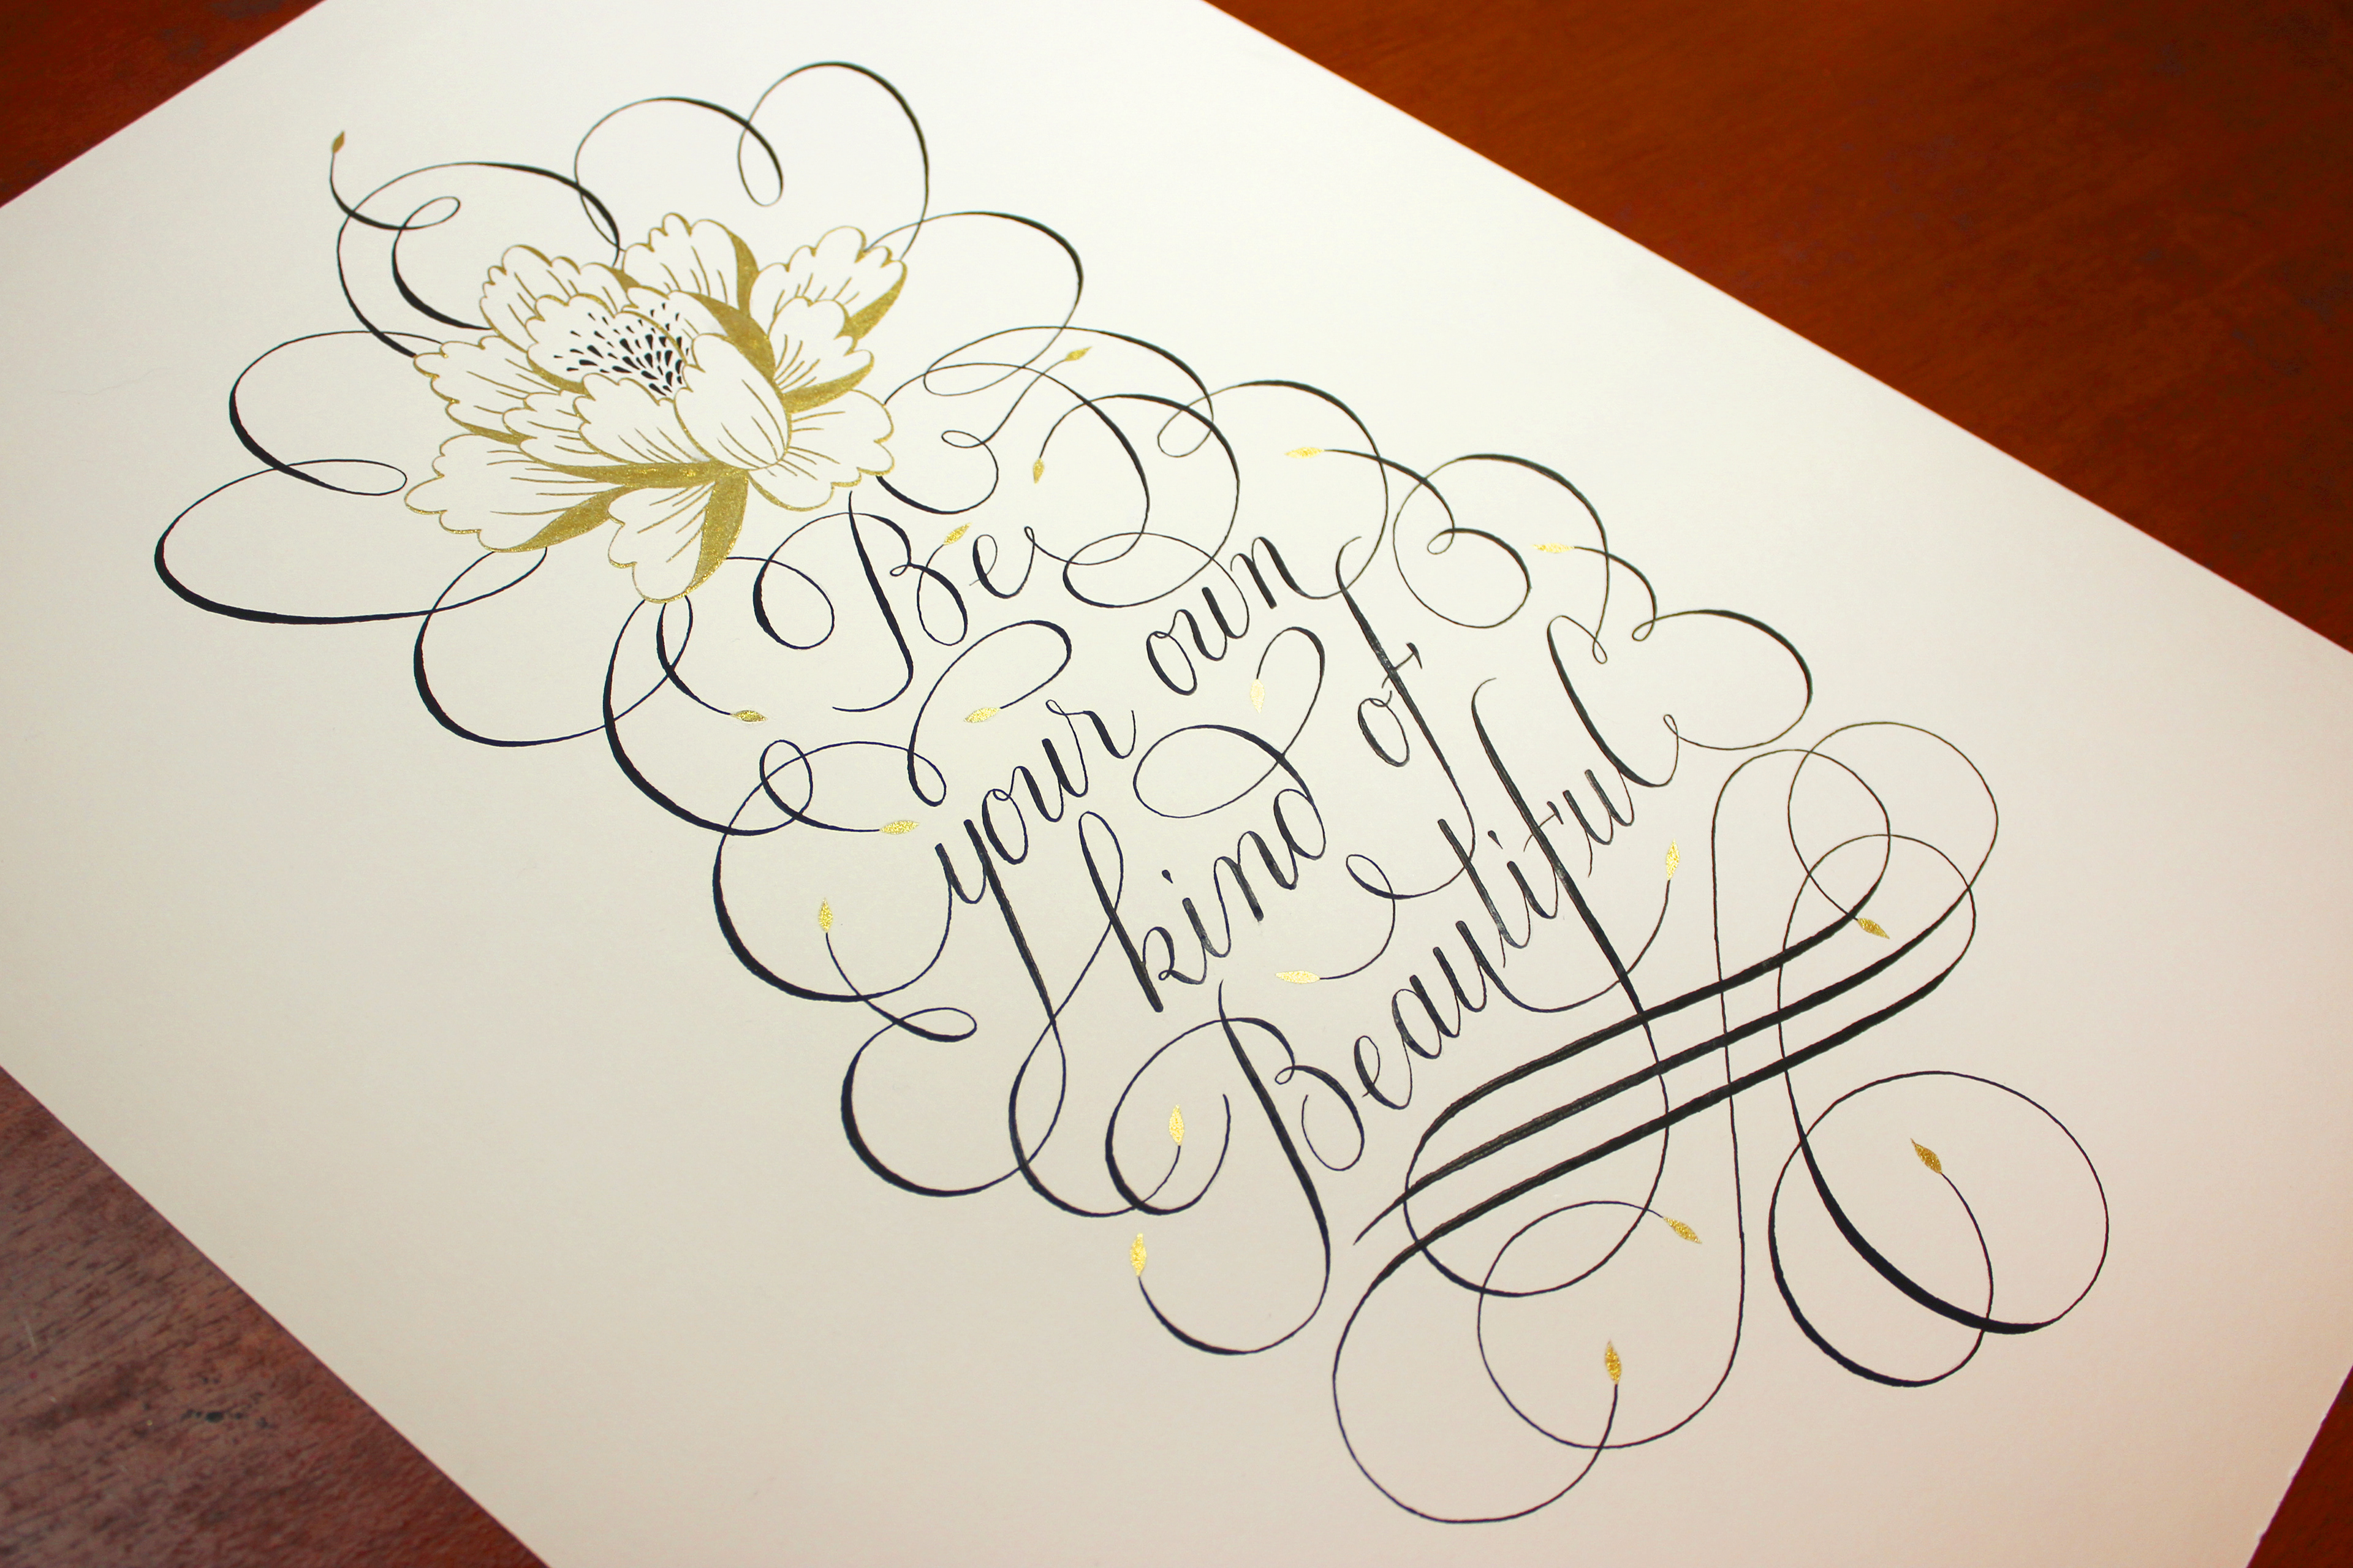 Be
your own
kind of
Beautiful